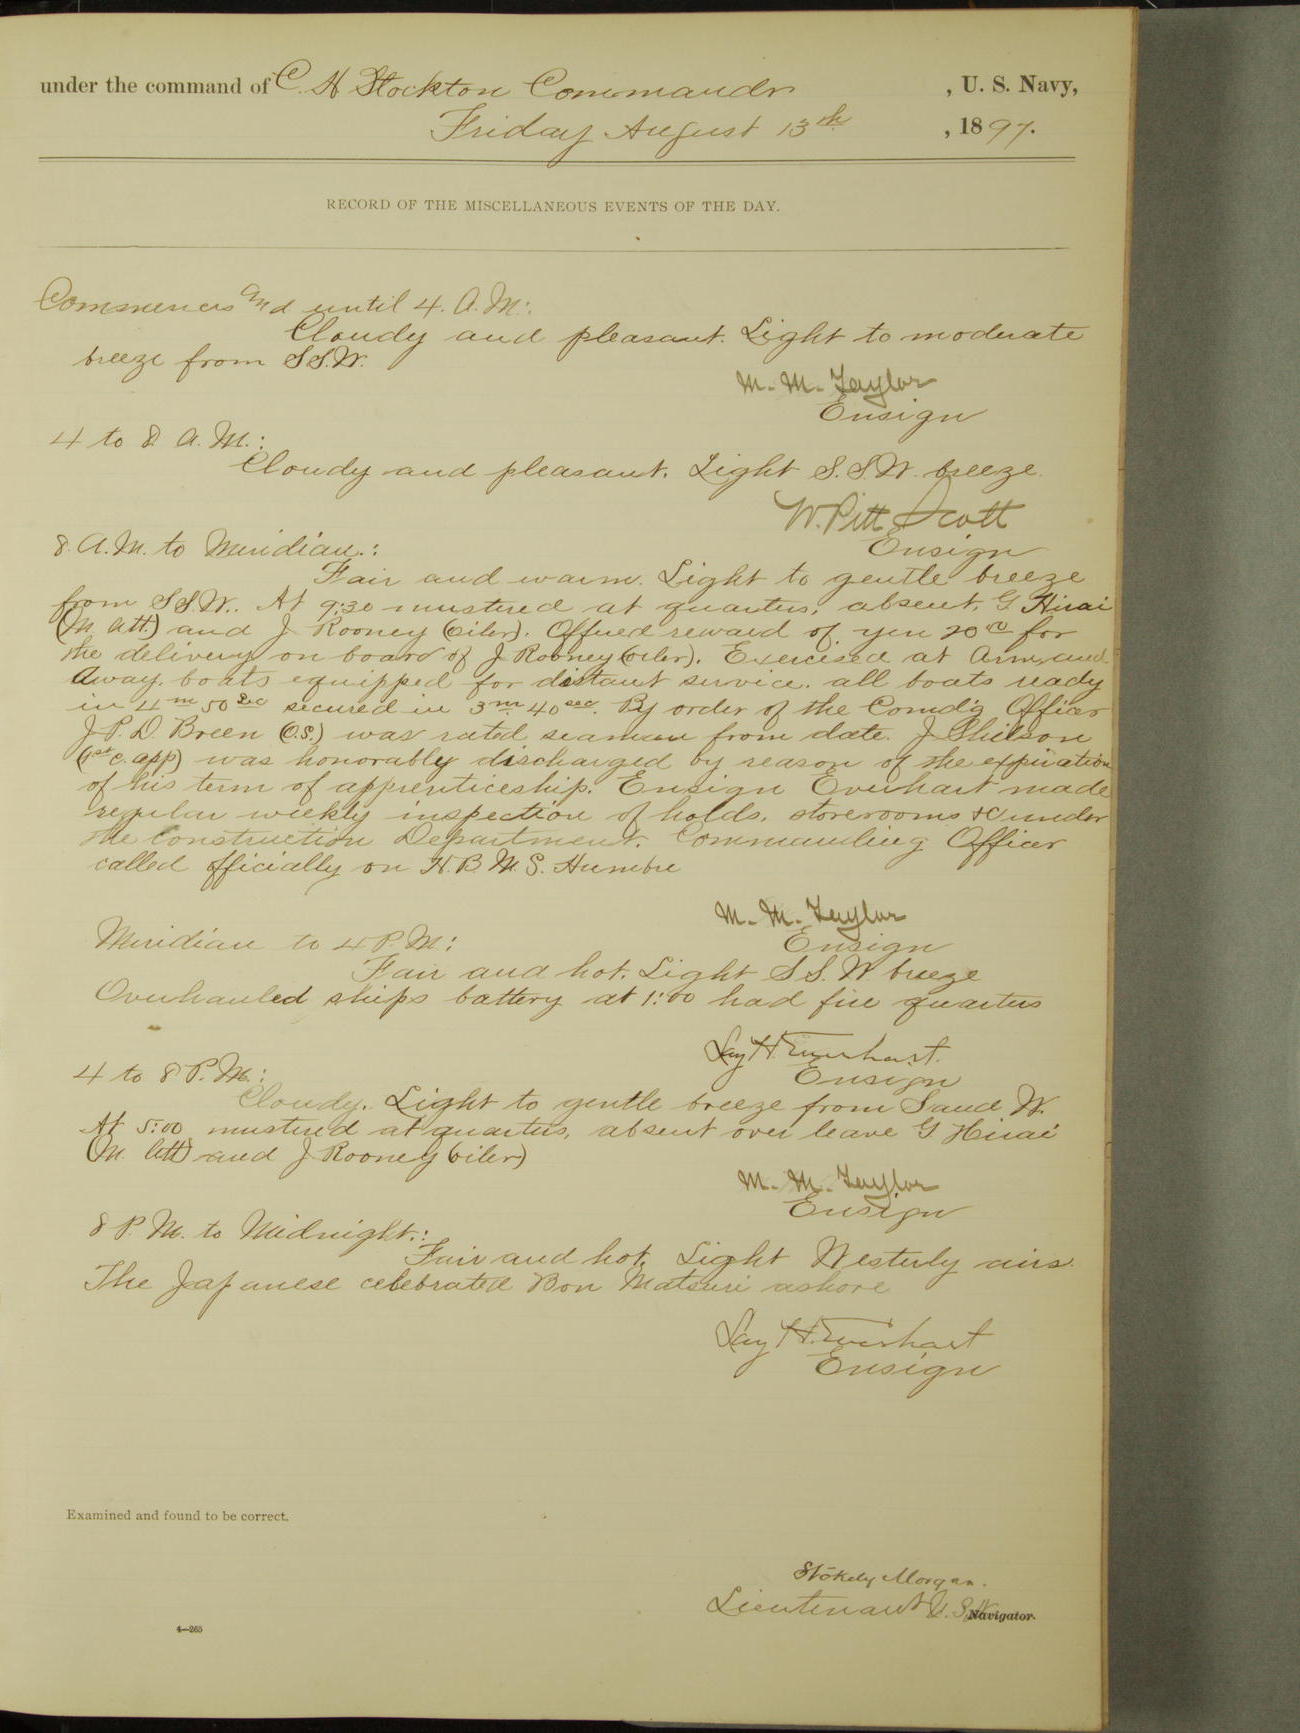 under the command of C. H Stockton Commandr , U. S. Navy,
Friday August 13th , 1897.
RECORD OF THE MISCELLANEOUS EVENTS OF THE DAY.
Commences and until 4. A.M:.
Cloudy and pleasant. Light to moderate
breeze from S.S.W.
M. M. Taylor
Ensign
4 to 8 A.M.:
Cloudy and pleasant. Light S.S.W. breeze.
W. Pitt Scott
Ensign
8. A.M. to Meridian.:
Fair and warm. Light to gentle breeze
from S.S.W.. At 9:30 mustered at quarters, absent, G Hirai
(M. Att.) and J Rooney (oiler). Offered reward of yen 20 00 for
the delivery on board of J Rooney (oiler). Exercised at Arm and
Away. boats equipped for distant service. all boats ready
in 4m 50sec secured in 3m 40sec. By order of the Comd'g Officer
J. P. D. Breen (O.S.) was rated seaman from date. J
(1st c. app) was honorably discharged by reason of the expiration
of his term of apprenticeship. Ensign Everhart made
regular weekly inspection of holds, storerooms &c under
the Construction Department. Commanding Officer
called officially on H. B. M. S. Humbre
M. M. Taylor
Ensign
Meridian to 4 P. M:
Fair and hot. Light S S. W breeze
Overhauled ships battery at 1:00 had fire quarters
Lay H. Everhart.
Ensign
4 to 8 P. M.:
Cloudy. Light to gentle breeze from S and W.
At 5:00 mustered at quarters, absent over leave G Hirai
(M. Att) and J Rooney (oiler)
M. M. Taylor
Ensign
8 P. M. to Midnight.:
Fair and hot. Light Westerly airs.
The Japanese celebrated Bon Matsuri ashore
Lay H. Everhart
Ensign
Examined and found to be correct.
Stokely Morgan.
Lieutenant U. S. N. Navigator.
4—265